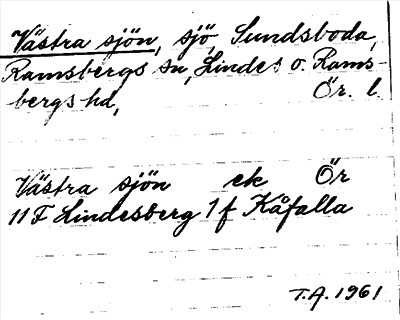 Västra sjön, sjö, Sundsboda,
Ramsbergs sn, Lindes o. Rams-
bergs hd, Ör. l.
Västra sjön ek Ör
11 F Lindesberg 1 f Kåfalla
T.A. 1961